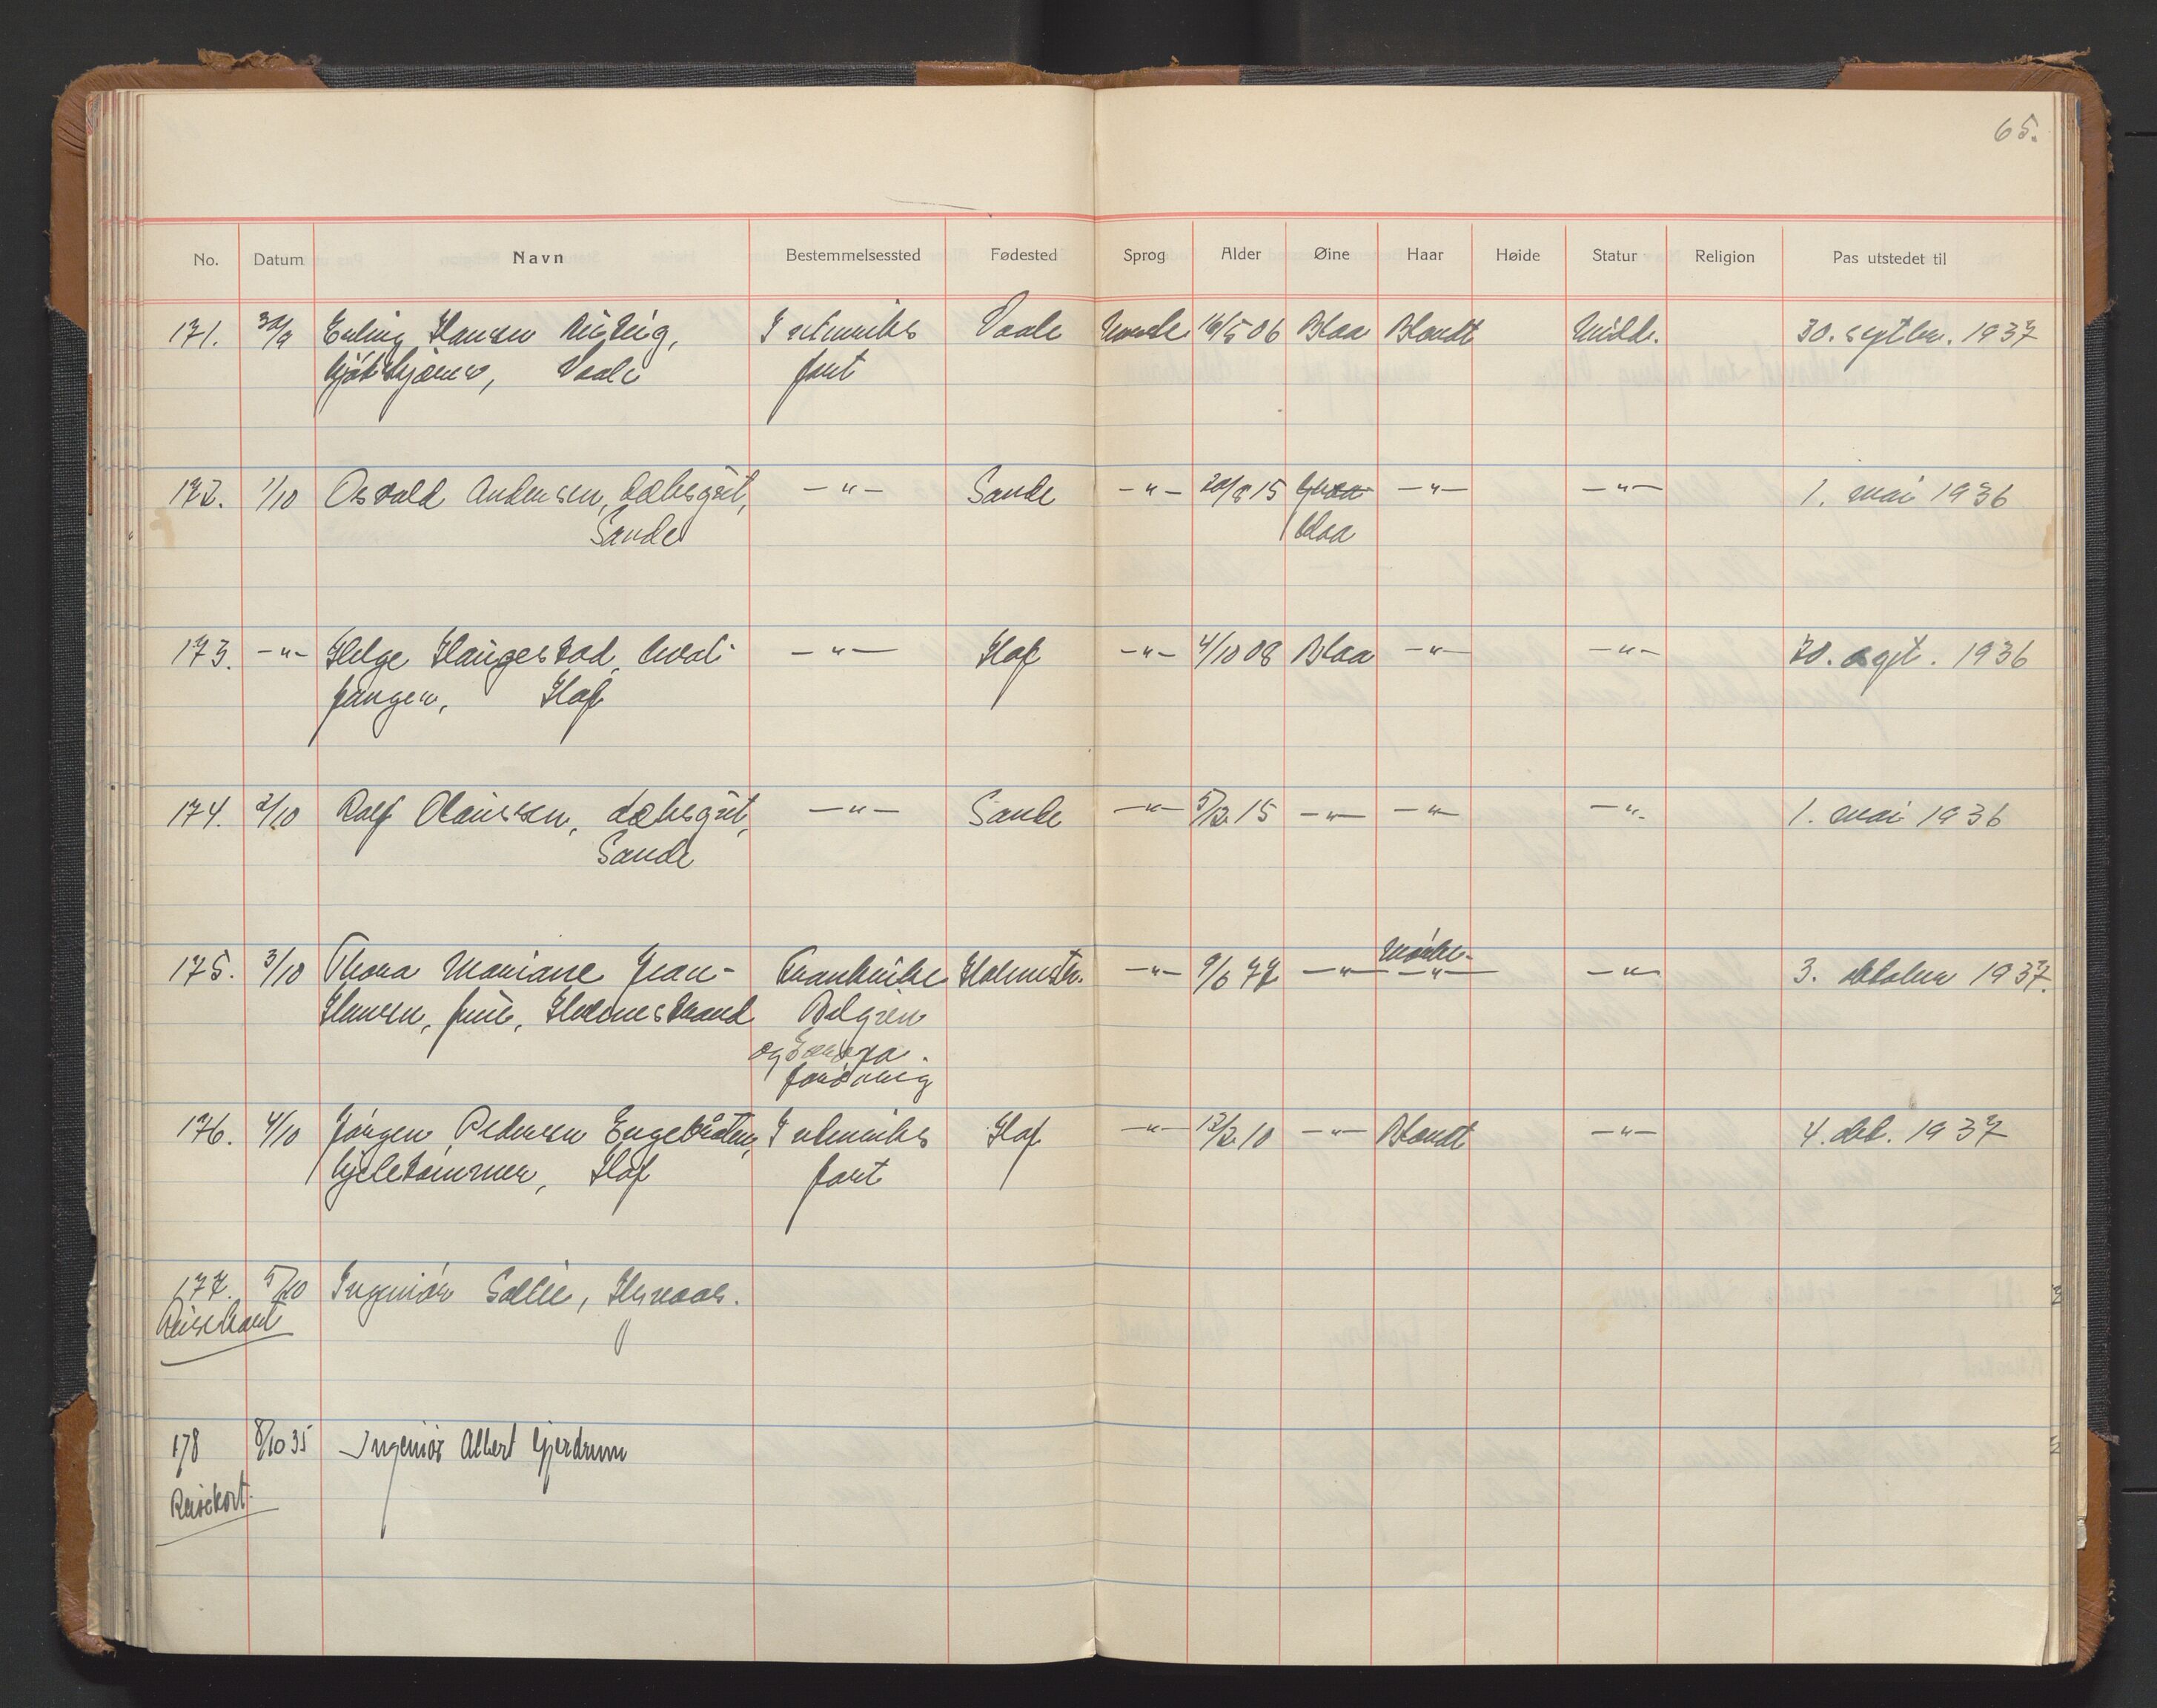 65.
No. Datum Navn Bestemmelsessted Fødested Sprog Alder Øine Haar Høide Statur Religion Pas utstedet til
171. 30/9 Erling Hansen I utenriks Vaale Norsk 16/5 06 Blaa Blondt Midd. 30. septbr. 1937
Vaale fart
172. 1/10 Osvald Andersen, dæksgut, -"- Sande -"- 20/8 15 -"- -"- 1. mai 1936
Sande blaa
173. -"- Helge Haugestad, hval- -"- Hof -"- 4/10 08 Blaa -"- -"- 30. sept. 1936
fanger, Hof
174. 2/10 Rolf Olaussen, dæksgut, -"- Sande -"- 5/12 15 -"- -"- -"- 1. mai 1936
Sande
Mørke
175. 3/10 Thora Mariane Gran- Frankrike Holmestr. -"- 9/6 77 -"- -"- -"- 3. oktober 1937.
Hansen, frue, Holmestrand Belgien
og Europa
forøvrig
176. 4/10 Jørgen Pedersen Engebråten, I utenriks Hof -"- 12/2 10 -"- Blondt -"- 4. okt. 1937
Hof fart
177. 5/10 Ingeniør Sollie,
Reisekort
178 8/10 35 Ingeniør Albert Gjerdrum
Reisekort.